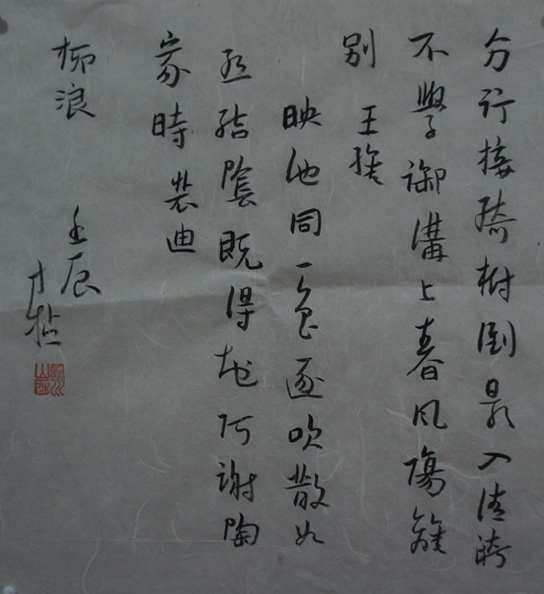 分行接綺樹倒影入清漪
不學御溝上春风傷離
别 王維
映池同一色逐吹散如
丝結陰既得地何謝陶
家時 裴迪
柳浪 壬辰